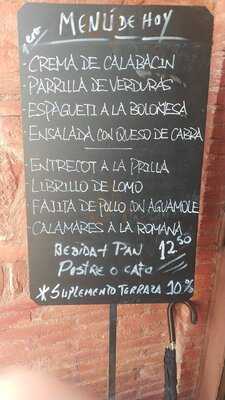 MENÚ DE HOY
1ero
- CREMA DE CALABACIN
- PARRILLA DE VERDURAS
- ESPAGUETI A LA BOLOMESA
- ENSALADA CON QUESO DE CABRA
- ENTRECOT A LA PRILLA
- LIBRILLO DE LOMO
- FAJITA DE POLLO CON AGUAMOLE
- CALAMARES A LA ROMANA
BEBIDA + PAN 12'50
POSTRE O CAFO
* SUPLEMENTO TERRAZA 10%